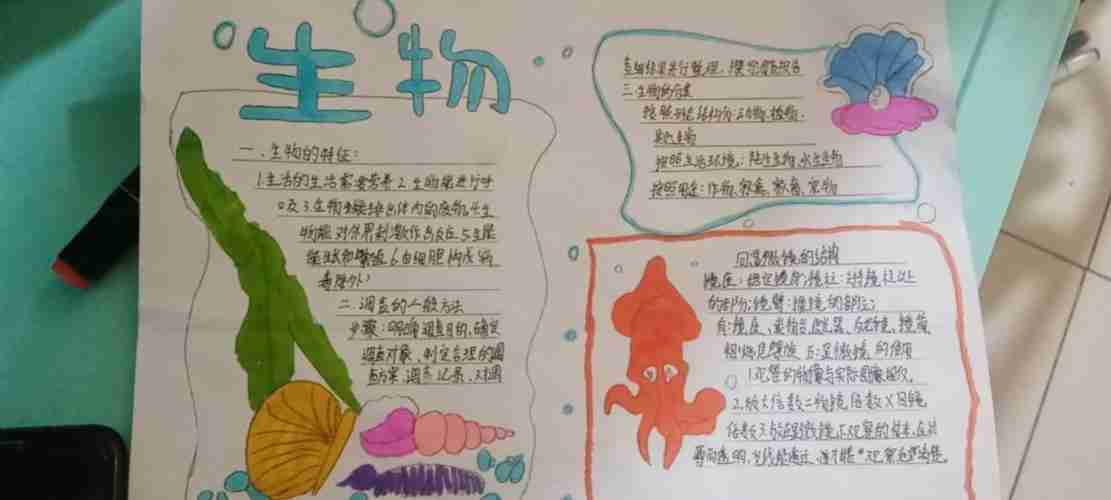 生物
一、生物的特征:
1.生活的生活需要营养 2.生物能进行呼
吸 3.生物能排出体内的废物 4.生
物能对外界刺激作出反应 5.生
和繁殖 6.由细胞构成(病
毒除外)
二、调查的一般方法
步骤:明确调查目的、确定
调查对象、制定合理的调
查方案、调查记录、对调
查结果进行整理、撰写调查报告
三、生物的分类
按照形态结构分:动物、植物、
其他生物
按照生活环境:陆生生物、水生生物
按照用途:作物、家禽、家畜、宠物
显微镜的结构
镜座:稳定镜身;镜柱:支持镜柱以上
的部分;镜臂:握镜的部位;
镜座、载物台、遮光器、反光镜、镜筒
粗 显微镜的使用
1.观察的物像与实际图像相反。
2.放大倍数=物镜倍数X目镜
倍数 3.放在显微镜下观察的标本,应
薄而透明,光线能通过,